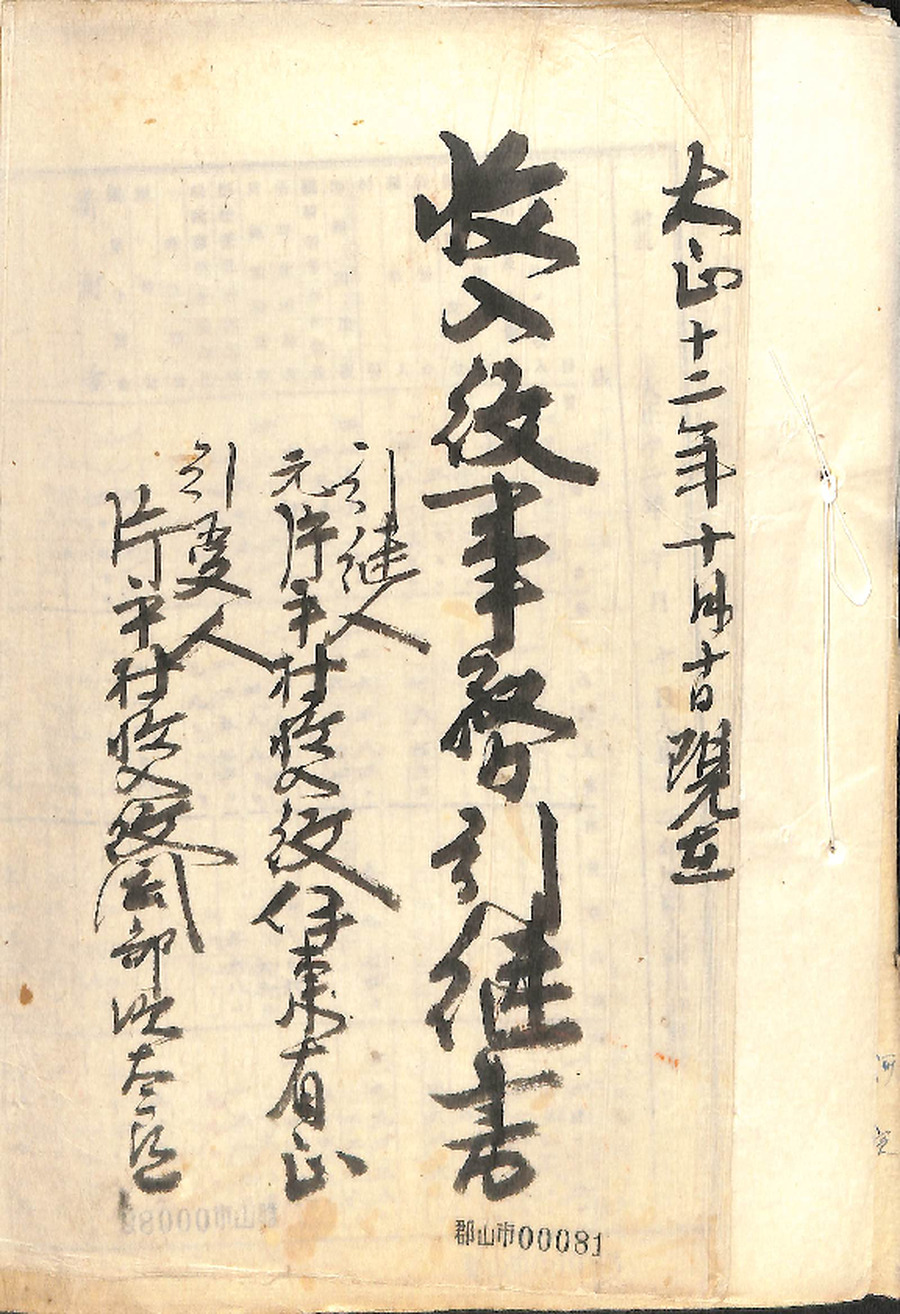 大正十二年十月十日現在
收入役事務引継書
引継人
元片平村收入役伊東有正
引受人
片平村收入役
郡山市00081